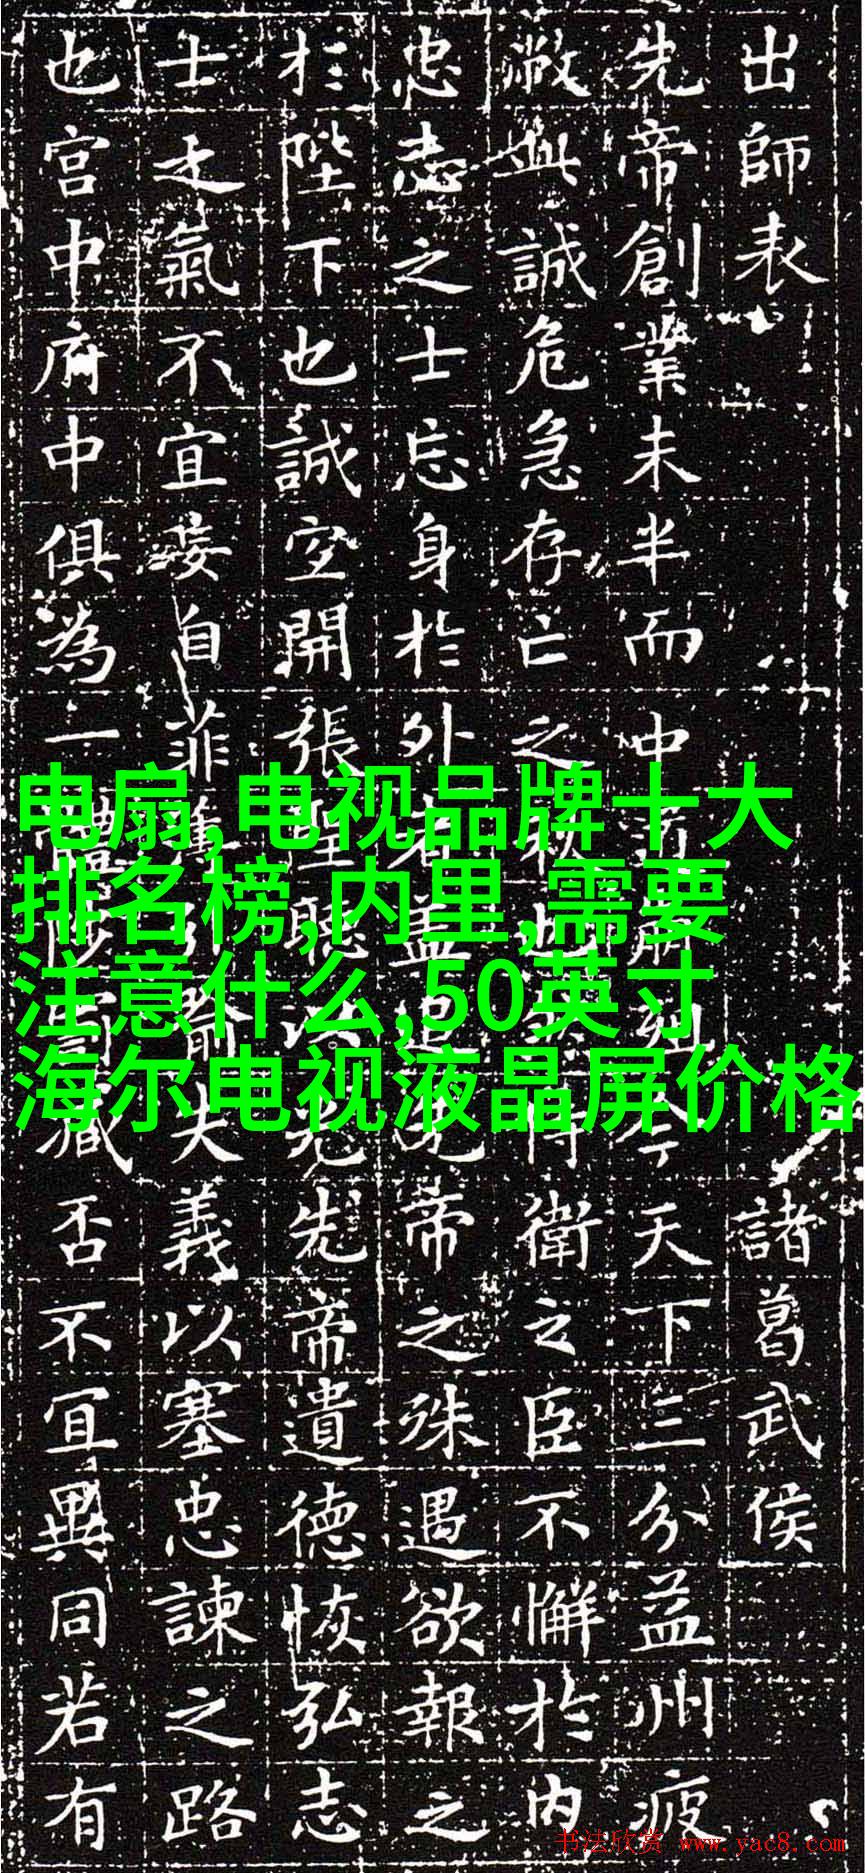 出師表 諸葛武侯
先帝創業未半而中今天下三分益州疲
敝誠危急存亡之衛之臣不懈於內
忠志之士忘身於外者蓋追先帝之殊遇欲報之
於陛下也誠宜開張聖聽光先帝遺德恢弘志
士之氣不宜妄自菲喻失義以塞忠諫之路
也宮中府中俱為一罰臧否不宜異同若有
电扇,电视品牌十大
排名榜,内里,需要
注意什么,50英寸
海尔电视液晶屏价格
书法欣赏 www.yac8.com